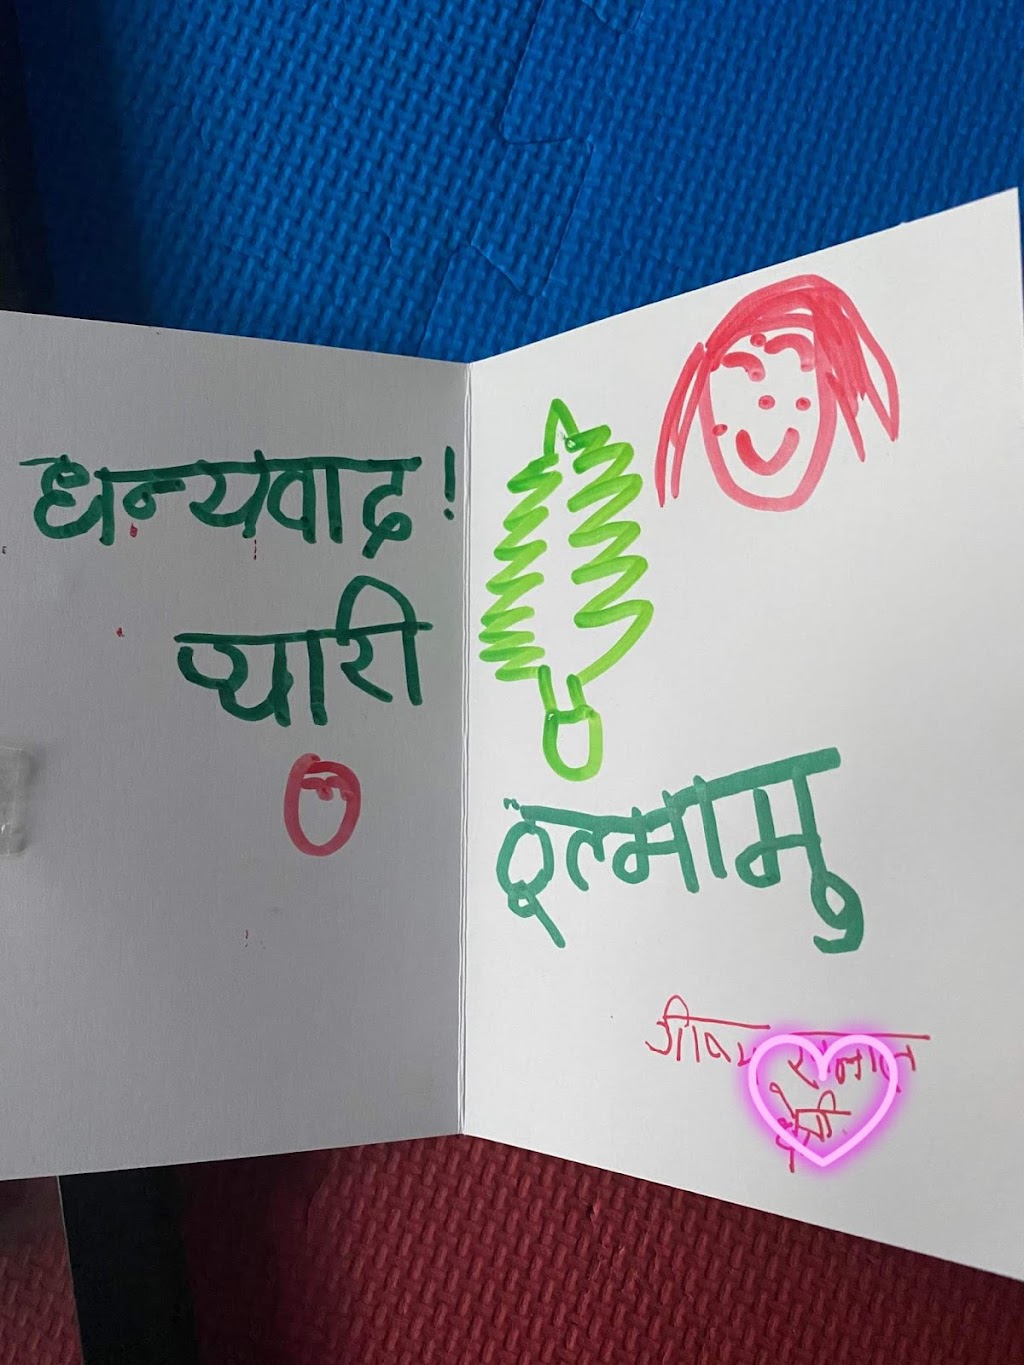 धन्यवाद!
प्यारी
इत्मामु